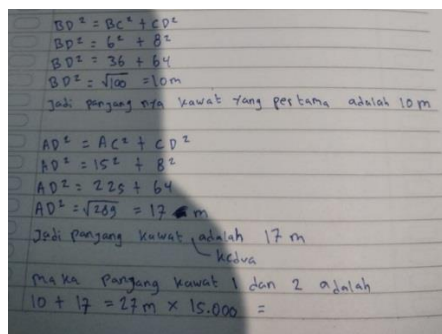 BD² = BC² + CD²
BD² = 6² + 8²
BD² = 36 + 64
BD² = √100 = 10m
Jadi panjang nya kawat yang pertama adalah 10 m
AD² = AC² + CD²
AD² = 15² + 8²
AD² = 225 + 64
AD² = √289 = 17 m
Jadi panjang kawat adalah 17 m
kedua
maka panjang kawat 1 dan 2 adalah
10 + 17 = 27 m × 15.000 =